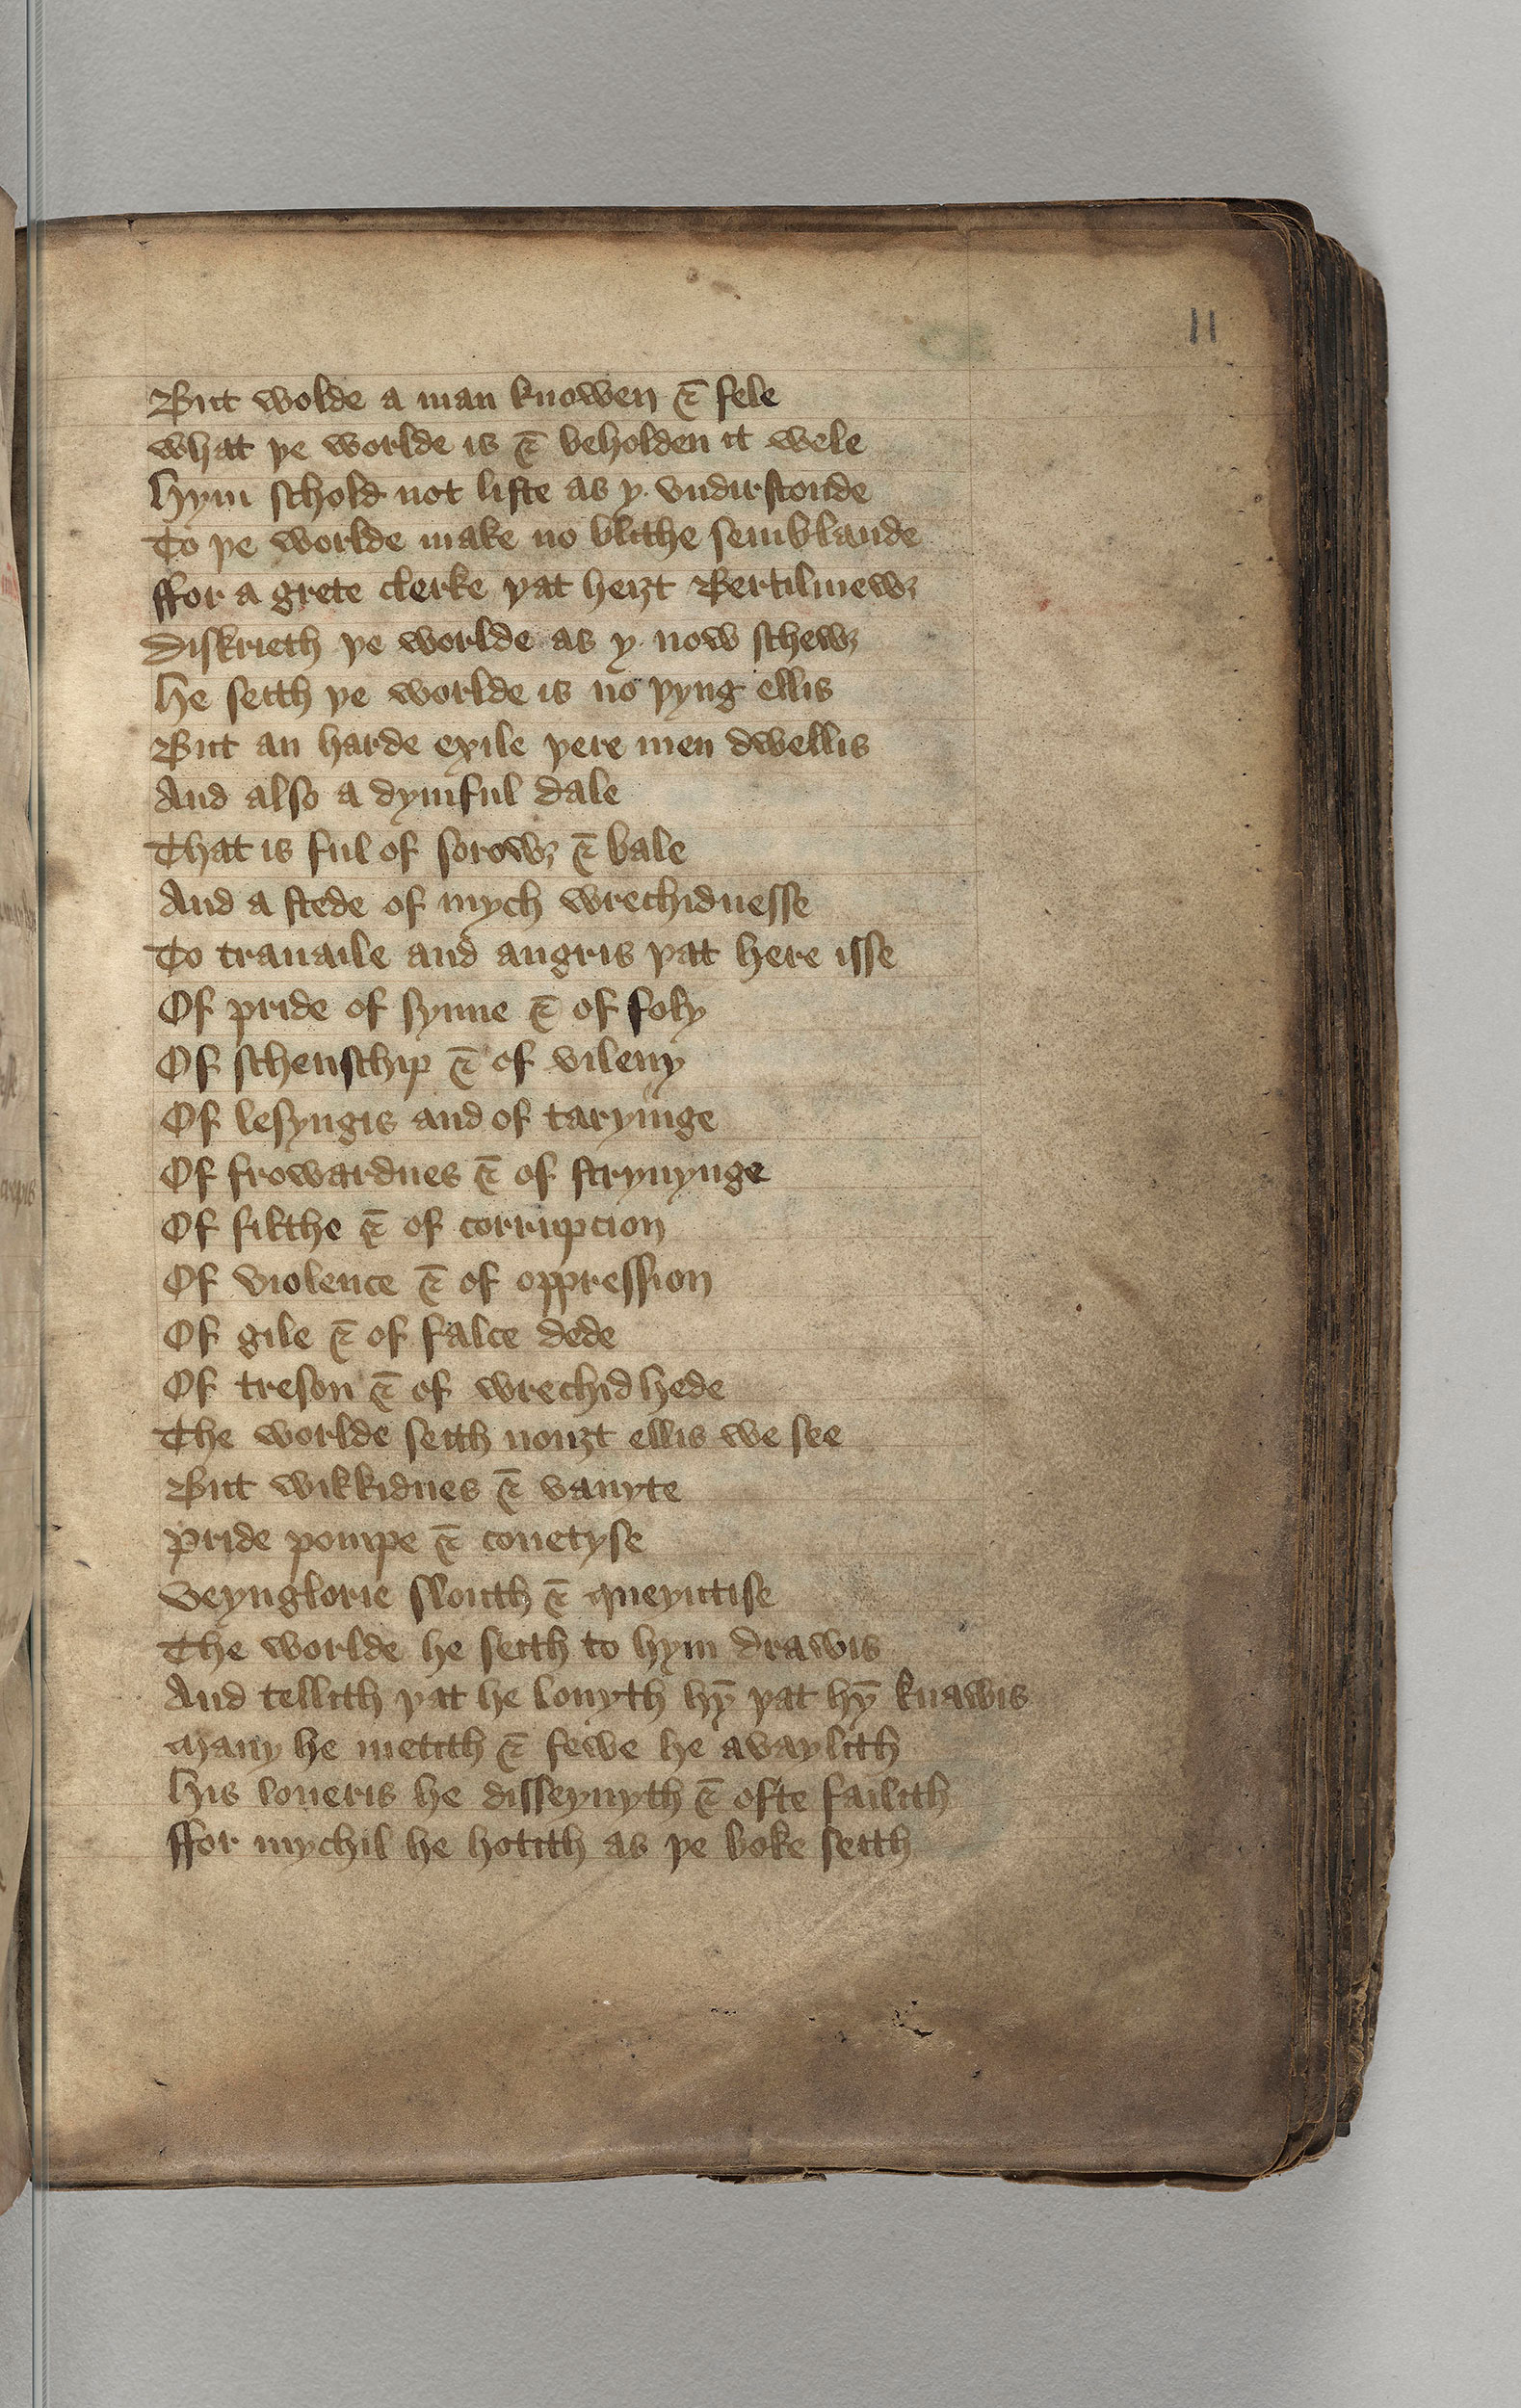 11
But wolde a man knowen & fele
what þe worlde is & beholden it wele
hym schold not liste as y· vndirstonde
To þe worlde make no blithe semblande
ffor a grete clerke þat heiȝt Bertilmewȝ
Diskrieth þe worlde as y· now schewȝ
he seith þe worlde is no þyng ellis
But an harde exile þere men dwellis
And also a dymful dale
That is ful of sorowȝ & bale
And a stede of mych wrechidnesse
To trauaile and angris þat here isse
Of pride of synne & of foly
Of schenschip & of vileny
Of lesyngis and of taryinge
Of frowardnes & of stryuynge
Of filthe & of corrupcion
Of violence & of oppression
Of gile & of falce dede
Of treson & of wrechidhede
The worlde seith nouȝt ellis we see
But wikkidnes & vanyte
pride pompe & couetyse
veynglorie slouth & queyntise
The worlde he seith to hym drawis
And tellith þat he louyth hȳ þat hȳ knawis
Many he metith & fewe he avaylith
his loueris he disseyuyth & ofte failith
ffor mychil he hotith as þe boke seith